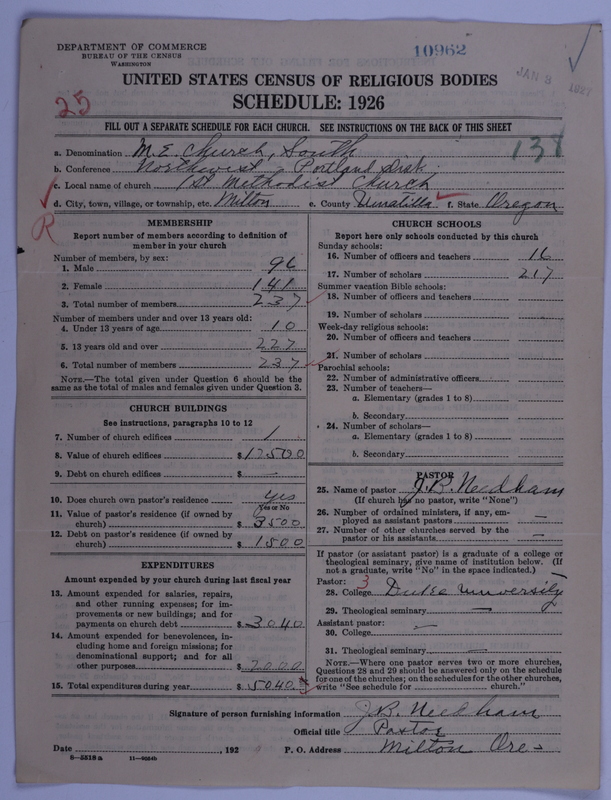 DEPARTMENT OF COMMERCE
BUREAU OF THE CENSUS
WASHINGTON
10962
JAN 3 1927
UNITED STATES CENSUS OF RELIGIOUS BODIES
SCHEDULE: 1926
25
FILL OUT A SEPARATE SCHEDULE FOR EACH CHURCH. SEE INSTRUCTIONS ON THE BACK OF THIS SHEET
138
a. Denomination M.E. Church, South
b. Conference Northwest Portland Disk
c. Local name of church 1st Methodist Church
d. City, town, village, or township, etc. Milton e. County Umatilla f. State Oregon
R
MEMBERSHIP
Report number of members according to definition of
member in your church
Number of members, by sex:
1. Male 96
2. Female 141
3. Total number of members 237
Number of members under and over 13 years old:
4. Under 13 years of age 10
5. 13 years old and over 227
6. Total number of members 237
NOTE.—The total given under Question 6 should be the
same as the total of males and females given under Question 3.
CHURCH BUILDINGS
See instructions, paragraphs 10 to 12
7. Number of church edifices 1
8. Value of church edifices $12500
9. Debt on church edifices $ —
10. Does church own pastor's residence yes
Yes or No
11. Value of pastor's residence (if owned by
church) $3500
12. Debt on pastor's residence (if owned by
church) $1500
EXPENDITURES
Amount expended by your church during last fiscal year
13. Amount expended for salaries, repairs,
and other running expenses; for im-
provements or new buildings; and for
payments on church debt $3040
14. Amount expended for benevolences, in-
cluding home and foreign missions; for
denominational support; and for all
other purposes $2000
15. Total expenditures during year $5040
CHURCH SCHOOLS
Report here only schools conducted by this church
Sunday schools:
16. Number of officers and teachers 16
17. Number of scholars 217
Summer vacation Bible schools:
18. Number of officers and teachers
19. Number of scholars
Week-day religious schools:
20. Number of officers and teachers
21. Number of scholars
Parochial schools:
22. Number of administrative officers
23. Number of teachers—
a. Elementary (grades 1 to 8)
b. Secondary
24. Number of scholars—
a. Elementary (grades 1 to 8)
b. Secondary
PASTOR
25. Name of pastor J.B. Needham
(If church has no pastor, write "None")
26. Number of ordained ministers, if any, em-
ployed as assistant pastors —
27. Number of other churches served by the
pastor or his assistants —
If pastor (or assistant pastor) is a graduate of a college or
theological seminary, give name of institution below. (If
not a graduate, write "No" in the space indicated.)
Pastor: 3
28. College Duke University
29. Theological seminary —
Assistant pastor:
30. College —
31. Theological seminary —
NOTE.—Where one pastor serves two or more churches,
Questions 28 and 29 should be answered only on the schedule
for one of the churches; on the schedules for the other churches,
write "See schedule for church."
Signature of person furnishing information J.B. Needham
Official title Pastor
Date , 192 P. O. Address Milton Ore-
8—5518a 11—9564b